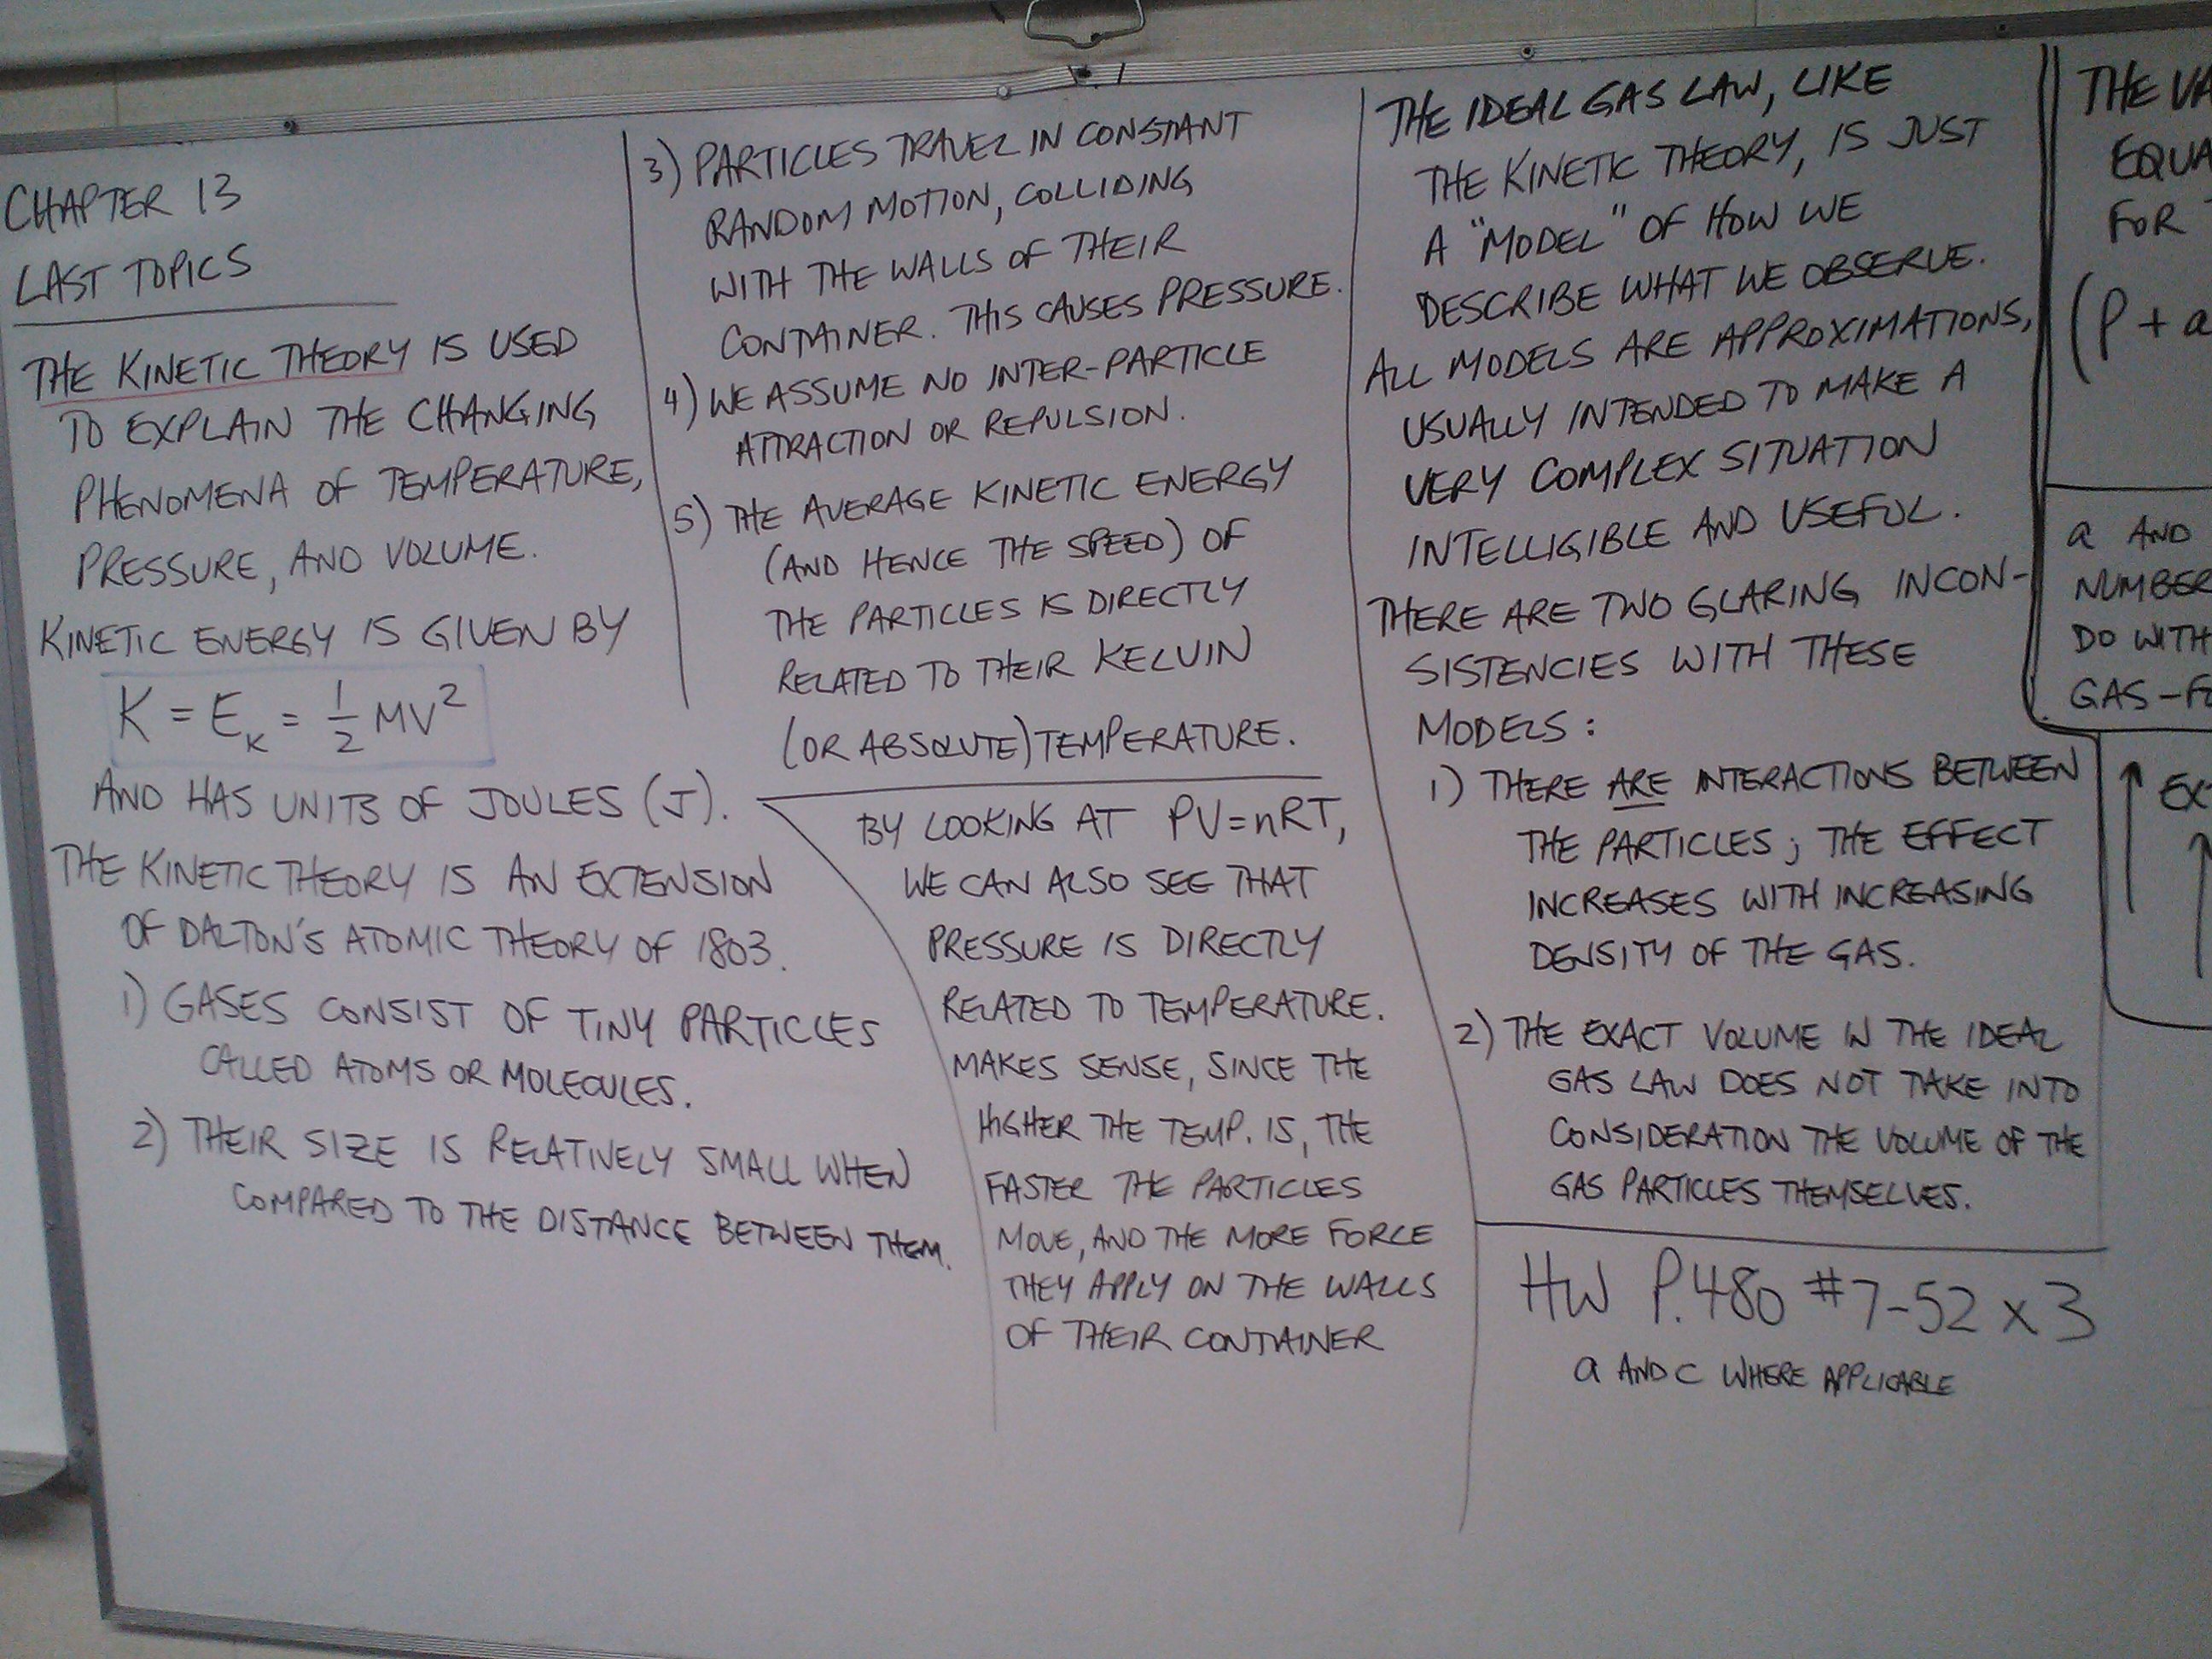 CHAPTER 13
LAST TOPICS
THE KINETIC THEORY IS USED
TO EXPLAIN THE CHANGING
PHENOMENA OF TEMPERATURE,
PRESSURE, AND VOLUME.
KINETIC ENERGY IS GIVEN BY
K = E_K = 1/2 MV²
AND HAS UNITS OF JOULES (J).
THE KINETIC THEORY IS AN EXTENSION
OF DALTON'S ATOMIC THEORY OF 1803.
1) GASES CONSIST OF TINY PARTICLES
CALLED ATOMS OR MOLECULES.
2) THEIR SIZE IS RELATIVELY SMALL WHEN
COMPARED TO THE DISTANCE BETWEEN THEM.
3) PARTICLES TRAVEL IN CONSTANT
RANDOM MOTION, COLLIDING
WITH THE WALLS OF THEIR
CONTAINER. THIS CAUSES PRESSURE.
4) WE ASSUME NO INTER-PARTICLE
ATTRACTION OR REPULSION.
5) THE AVERAGE KINETIC ENERGY
(AND HENCE THE SPEED) OF
THE PARTICLES IS DIRECTLY
RELATED TO THEIR KELVIN
(OR ABSOLUTE) TEMPERATURE.
BY LOOKING AT PV=nRT,
WE CAN ALSO SEE THAT
PRESSURE IS DIRECTLY
RELATED TO TEMPERATURE.
MAKES SENSE, SINCE THE
HIGHER THE TEMP. IS, THE
FASTER THE PARTICLES
MOVE, AND THE MORE FORCE
THEY APPLY ON THE WALLS
OF THEIR CONTAINER
THE IDEAL GAS LAW, LIKE
THE KINETIC THEORY, IS JUST
A "MODEL" OF HOW WE
DESCRIBE WHAT WE OBSERVE.
ALL MODELS ARE APPROXIMATIONS,
USUALLY INTENDED TO MAKE A
VERY COMPLEX SITUATION
INTELLIGIBLE AND USEFUL.
THERE ARE TWO GLARING INCON-
SISTENCIES WITH THESE
MODELS:
1) THERE ARE INTERACTIONS BETWEEN
THE PARTICLES; THE EFFECT
INCREASES WITH INCREASING
DENSITY OF THE GAS.
2) THE EXACT VOLUME IN THE IDEAL
GAS LAW DOES NOT TAKE INTO
CONSIDERATION THE VOLUME OF THE
GAS PARTICLES THEMSELVES.
HW P.480 #7-52 x 3
a AND C WHERE APPLICABLE
THE VA
EQUA
FOR
(P + a
a AND
NUMBER
DO WITH
GAS-F
EX